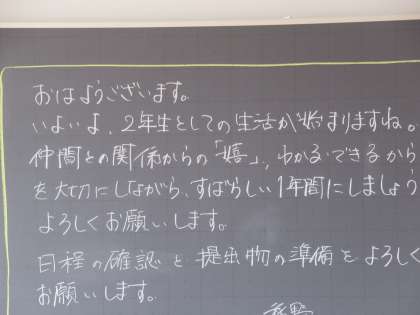 おはようございます。
いよいよ、2年生としての生活が始まりますね。
仲間との関係からの「嬉」、わかる・できるから
を大切にしながら、すばらしい1年間にしましょう
よろしくお願いします。
日程の確認と提出物の準備をよろしく
お願いします。